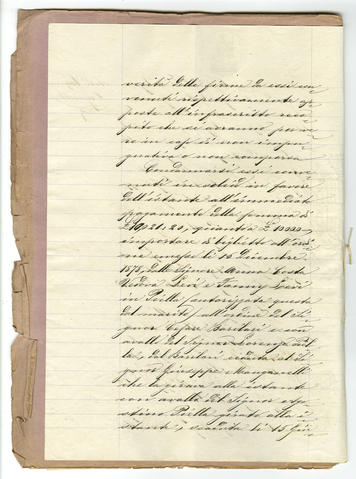 verità delle firme da essi con
venuti rispettivamente ap
poste all'infrascritto reca
pito che si avranno per ve
re in caso di non impu
gnativa o non comparsa
Condannarsi essi conve
nuti in solido in favore
dell'istante all'immediato
pagamento della somma di
£ 10021:20, quanti a £ 10000
importare di biglietto all'ordi
ne emesso li 15 Dicembre
1878, dalle Signore Anna Costa
Vedova Levi e Fanny Levi
in Pirilla (autorizzata questa
dal marito) all'ordine del Si
gnor Cesare Baritari e con
avallo del Signor Lorenzo Piril
la, dal Baritari ceduto al Si
gnor Giuseppe Manganelli
che lo girava alla istante
con avallo del Signor
Pirilla girato alla i
stante, scaduto li 15 Giu